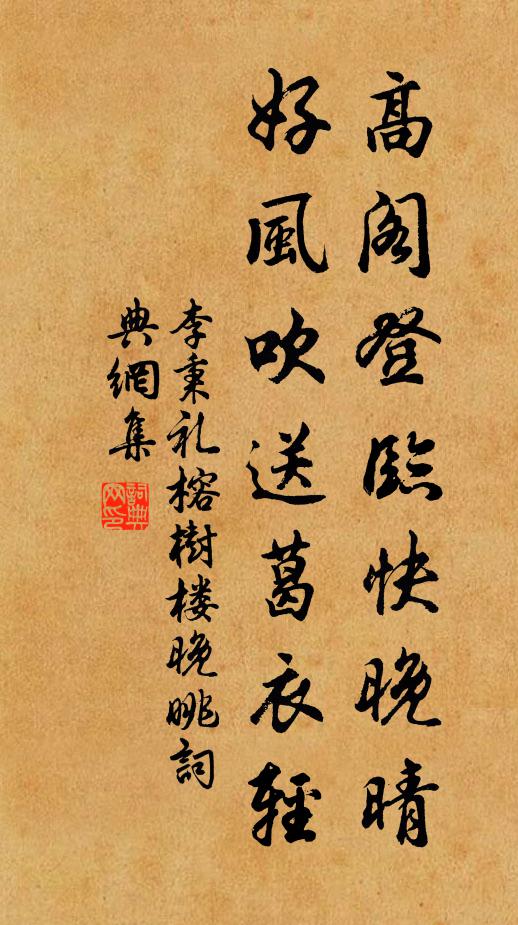 高阁登臨快晚晴
好風吹送葛衣輕
李秉礼榕樹楼晚眺詞
典網集
詞典
网印